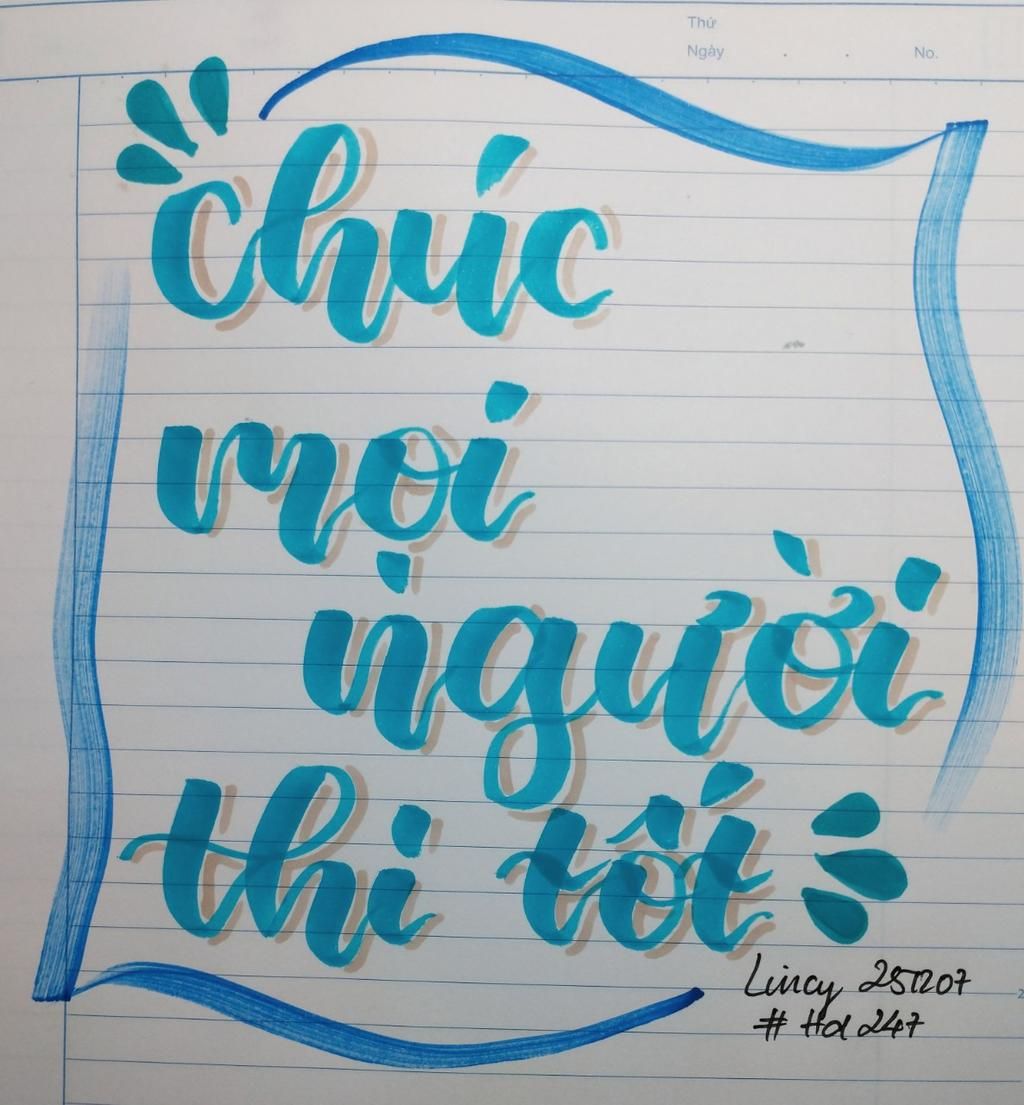 Thứ
Ngày . . No.
chúc
mọi
người
thi tốt
Lincy 251207
# Hd 247